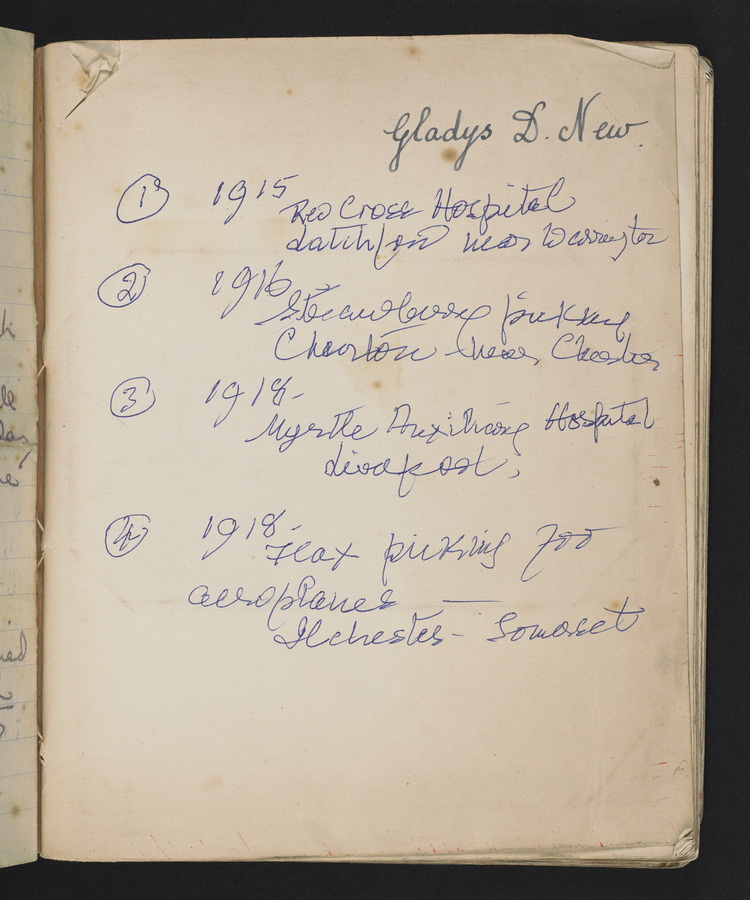 Gladys D. New.
① 1915
Red Cross Hospital
Latchford near Warrington
② 1916
Strawberry picking
Churton near Chester
③ 1918-
Myrtle Auxiliary Hospital
Liverpool,
④ 1918-
Flax picking for
aeroplanes —
Ilchester - Somerset